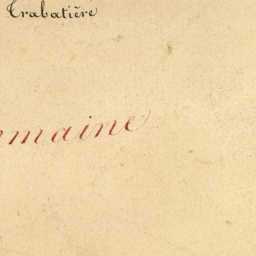 Trabatière
maine